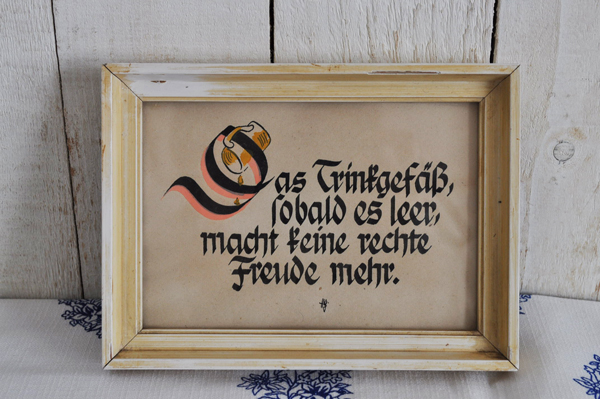 Das Trinkgefäß,
sobald es leer,
macht keine rechte
Freude mehr.